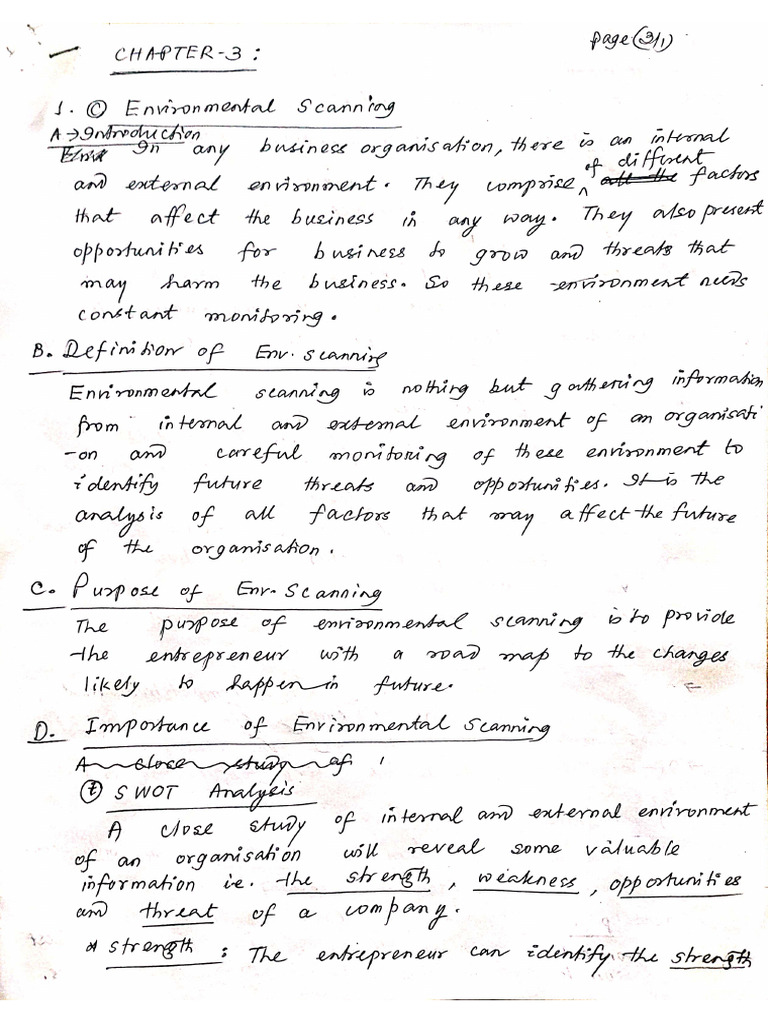 page (3/1)
CHAPTER-3:
1. © Environmental Scanning
A → Introduction
In any business organisation, there is an internal
and external environment. They comprise of different factors
that affect the business in any way. They also present
opportunities for business to grow and threats that
may harm the business. So these environment needs
constant monitoring.
B. Definition of Env. scanning
Environmental scanning is nothing but gathering information
from internal and external environment of an organisati
-on and careful monitoring of these environment to
identify future threats and opportunities. It is the
analysis of all factors that may affect the future
of the organisation.
C. Purpose of Env. Scanning
The purpose of environmental scanning is to provide
the entrepreneur with a road map to the changes
likely to happen in future.
D. Importance of Environmental Scanning
A close study of
SWOT Analysis
A close study of internal and external environment
of an organisation will reveal some valuable
information ie. the strength, weakness, opportunities
and threat of a company.
* strength : The entrepreneur can identify the strength